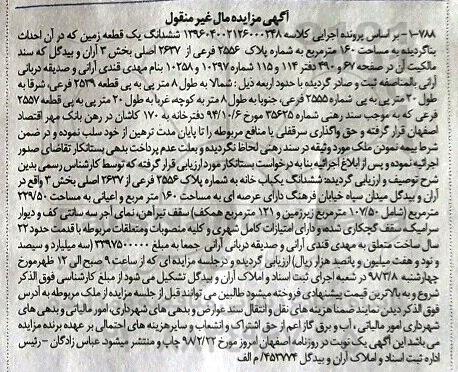 آگهی مزایده مال غیر منقول
۷۸۸-۱- بر اساس پرونده اجرایی کلاسه ۱۳۹۶۰۴۰۰۲۱۲۶۰۰۰۳۴۸ ششدانگ یک قطعه زمین که در آن احداث
بناگردیده به مساحت ۱۶۰ مترمربع به شماره پلاک ۲۵۵۶ فرعی از ۲۶۳۷ اصلی بخش ۳ آران و بیدگل که سند
مالکیت آن در صفحه ۶۷ و ۴۹۰ دفتر ۱۱۴ و ۱۱۵ شماره ۱۰۲۹۷ و ۱۰۲۵۸ بنام مهدی قندی آرانی و صدیقه دربانی
آرانی بالمناصفه ثبت و صادر گردیده با حدود اربعه ذیل: شمالا به طول ۸ متر پی به پی قطعه ۲۵۳۹ فرعی، شرقا به
طول ۲۰ متر پی به پی شماره ۲۵۵۵ فرعی، جنوبا به طول ۸ متر به کوچه، غربا به طول ۲۰ متر پی به پی قطعه ۲۵۵۷
فرعی که به موجب سند رهنی شماره ۳۵۶۲۵ مورخ ۹۴/۱۰/۶ دفترخانه به ۱۷۰ کاشان در رهن بانک مهر اقتصاد
اصفهان قرار گرفته و حق واگذاری سرقفلی یا منافع مربوطه را تا پایان مدت ترهین از خود سلب نموده و در ضمن
شرط بیمه نمودن ملک مورد وثیقه در سند رهنی لحاظ نگردیده و بعلت عدم پرداخت بدهی بستانکار تقاضای صدور
اجرائیه نموده و پس از ابلاغ اجرائیه بنا به درخواست بستانکار مورد ارزیابی قرار گرفته که توسط کارشناس رسمی بدین
شرح توصیف و ارزیابی گردیده: ششدانگ یکباب خانه به شماره پلاک ۲۵۵۶ فرعی از ۲۶۳۷ اصلی بخش ۳ واقع در
آران و بیدگل میدان سپاه خیابان فرهنگ دارای عرصه ای به مساحت ۱۶۰ متر مربع و اعیانی به مساحت ۲۲۹/۵۰
مترمربع (شامل ۱۰۷/۵۰ مترمربع زیرزمین و ۱۲۱ مترمربع همکف) سقف تیرآهن، نمای آجر سه سانتی کف و دیوار
سرامیک، سقف گچکاری شده و دارای امتیازات کامل شهری و کلیه منصوبات ومتعلقات مربوطه با قدمت حدود ۲۲
سال ساخت متعلق به مهدی قندی آرانی و صدیقه دربانی آرانی جمعا به مبلغ ۳۳۹۷۵۰۰۰۰۰ (سه میلیارد و سیصد
و نود و هفت میلیون و پانصد هزار ریال) ارزیابی گردیده و درجلسه مزایده ای که از ساعت ۹ صبح الی ۱۲ ظهرمورخ
چهارشنبه ۹۸/۳/۸ در شعبه اجرای ثبت اسناد و املاک آران و بیدگل تشکیل می شود از مبلغ کارشناسی فوق الذکر
شروع و به بالاترین قیمت پیشنهادی فروخته میشود طالبین می توانند قبل از جلسه مزایده از ملک مربوطه به آدرس
فوق الذکر دیدن نمایند ضمنا هزینه های نقل و انتقال سند عوارض و بدهی های شهرداری، امور مالیاتی و بدهی های
شهرداری امور مالیاتی ، آب و برق گاز اعم از حق اشتراک و انشعاب و سایر هزینه های احتمالی بر عهده برنده مزایده
می باشد این آگهی یک نوبت در روزنامه اصفهان امروز مورخ ۹۸/۲/۲۲ چاپ و منتشر میشود. عباس زادگان - رئیس
اداره ثبت اسناد و املاک آران و بیدگل ۴۵۳۷۷۴/ م الف